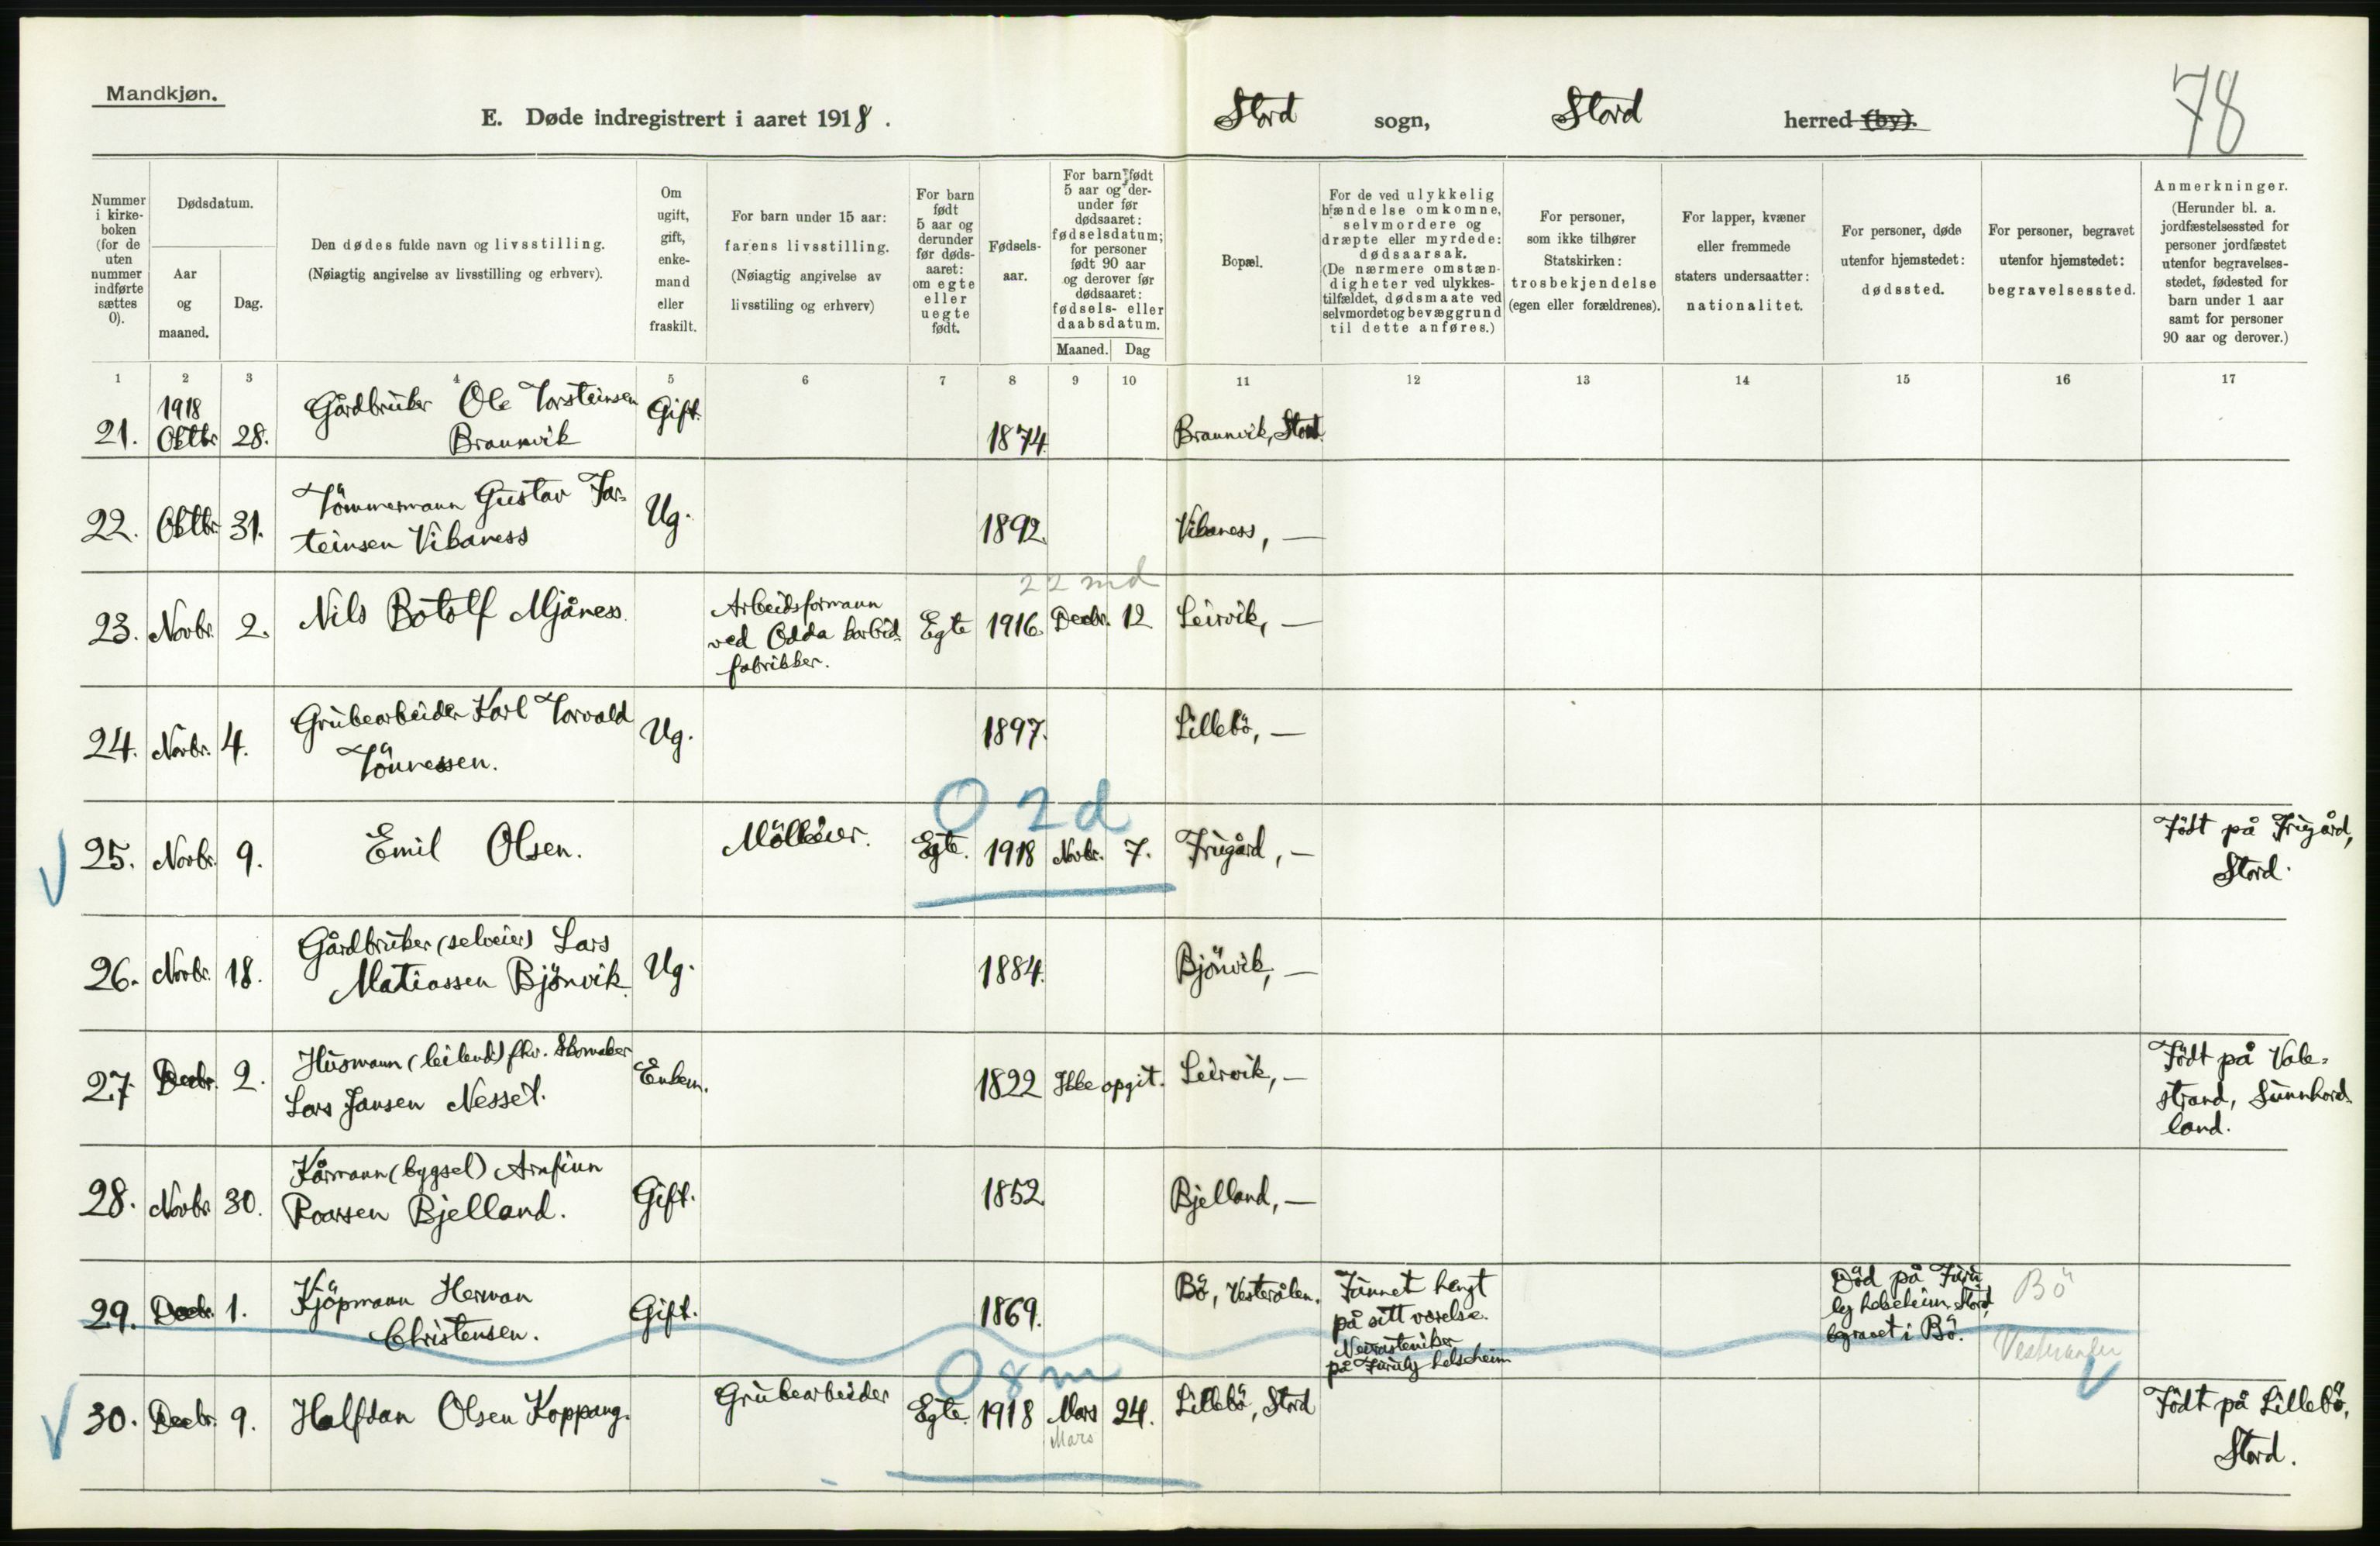 Mandkjøn.
E. Døde indregistrert i aaret 1918.
Stord sogn, Stord herred (by).
78
Nummer i kirke-boken (for de uten nummer indførte sættes 0).
Dødsdatum.
Aar og maaned.
Dag.
Den dødes fulde navn og livsstilling.
(Nøiagtig angivelse av livsstilling og erhverv).
Om ugift, gift, enke-mand eller fraskilt.
For barn under 15 aar:
farens livsstilling.
(Nøiagtig angivelse av livsstiling og erhverv)
For barn født 5 aar og derunder før døds-aaret: om egte eller uegte født.
Fødsels-aar.
For barn født 5 aar og der-under før dødsaaret: fødselsdatum; for personer født 90 aar og derover før dødsaaret: fødsels- eller daabsdatum.
Maaned.
Dag
Bopæl.
For de ved ulykkelig hændelse omkomne, selvmordere og dræpte eller myrdede: dødsaarsak.
(De nærmere omstæn-digheter ved ulykkes-tilfældet, dødsmaate ved selvmordet og bevæggrund til dette anføres.)
For personer, som ikke tilhører Statskirken: trosbekjendelse (egen eller forældrenes).
For lapper, kvæner eller fremmede staters undersaatter: nationalitet.
For personer, døde utenfor hjemstedet: dødssted.
For personer, begravet utenfor hjemstedet: begravelsessted.
Anmerkninger.
(Herunder bl. a. jordfæstelsessted for personer jordfæstet utenfor begravelses-stedet, fødested for barn under 1 aar samt for personer 90 aar og derover.)
1 2 3 4 5 6 7 8 9 10 11 12 13 14 15 16 17
21. 1918 Oktbr 28. Gårdbruker Ole Torsteinsen Braunvik Gift. 1874. Braunvik, Stord.
22. Oktbr. 31. Tömmermann Gustav Tor-teinsen Vikaness Ug. 1892. Vikaness, —
22 md
23. Novbr. 2. Nils Botolf Mjåness. Arbeidsformann ved Odda karbid-fabrikker. Egte 1916. Decbr. 12 Leirvik, —
24. Novbr. 4. Grubearbeider Karl Torvald Tönnessen. Ug. 1897. Lillebö, —
0 2 d
25. Novbr. 9. Emil Olsen. Egte. 1918 Novbr. 7. Frugård, — Födt på Frugård, Stord.
26. Novbr. 18. Gårdbruker (selveier) Lars Matiassen Björvik. Ug. 1884. —
27. Decbr. 2. Husmann (leilend.) fhv. Skomaker Lars Jansen Nesset. Enkem. 1822 Ikke opgit. Leirvik, — Födt på Vale-strand, Sunnhord-land.
28. Novbr 30. Kårmann (bygsel) Arnfinn Roarsen Bjelland. Gift. 1852. Bjelland, —
29. Decbr. 1. Kjöpmann Herman Christensen. Gift. 1869. Bö, Vesterålen. Funnet hengt på sitt værelse. Nevrasteniker på Furuly helseheim Död på Furu-ly helseheim, Stord, begravet i Bö. Bö Vesteraalen
0 8 m
30. Decbr. 9. Halfdan Olsen Koppang. Grubearbeider Egte. 1918 Mars 24. Lillebö, Stord Födt på Lillebö, Stord.
Mars